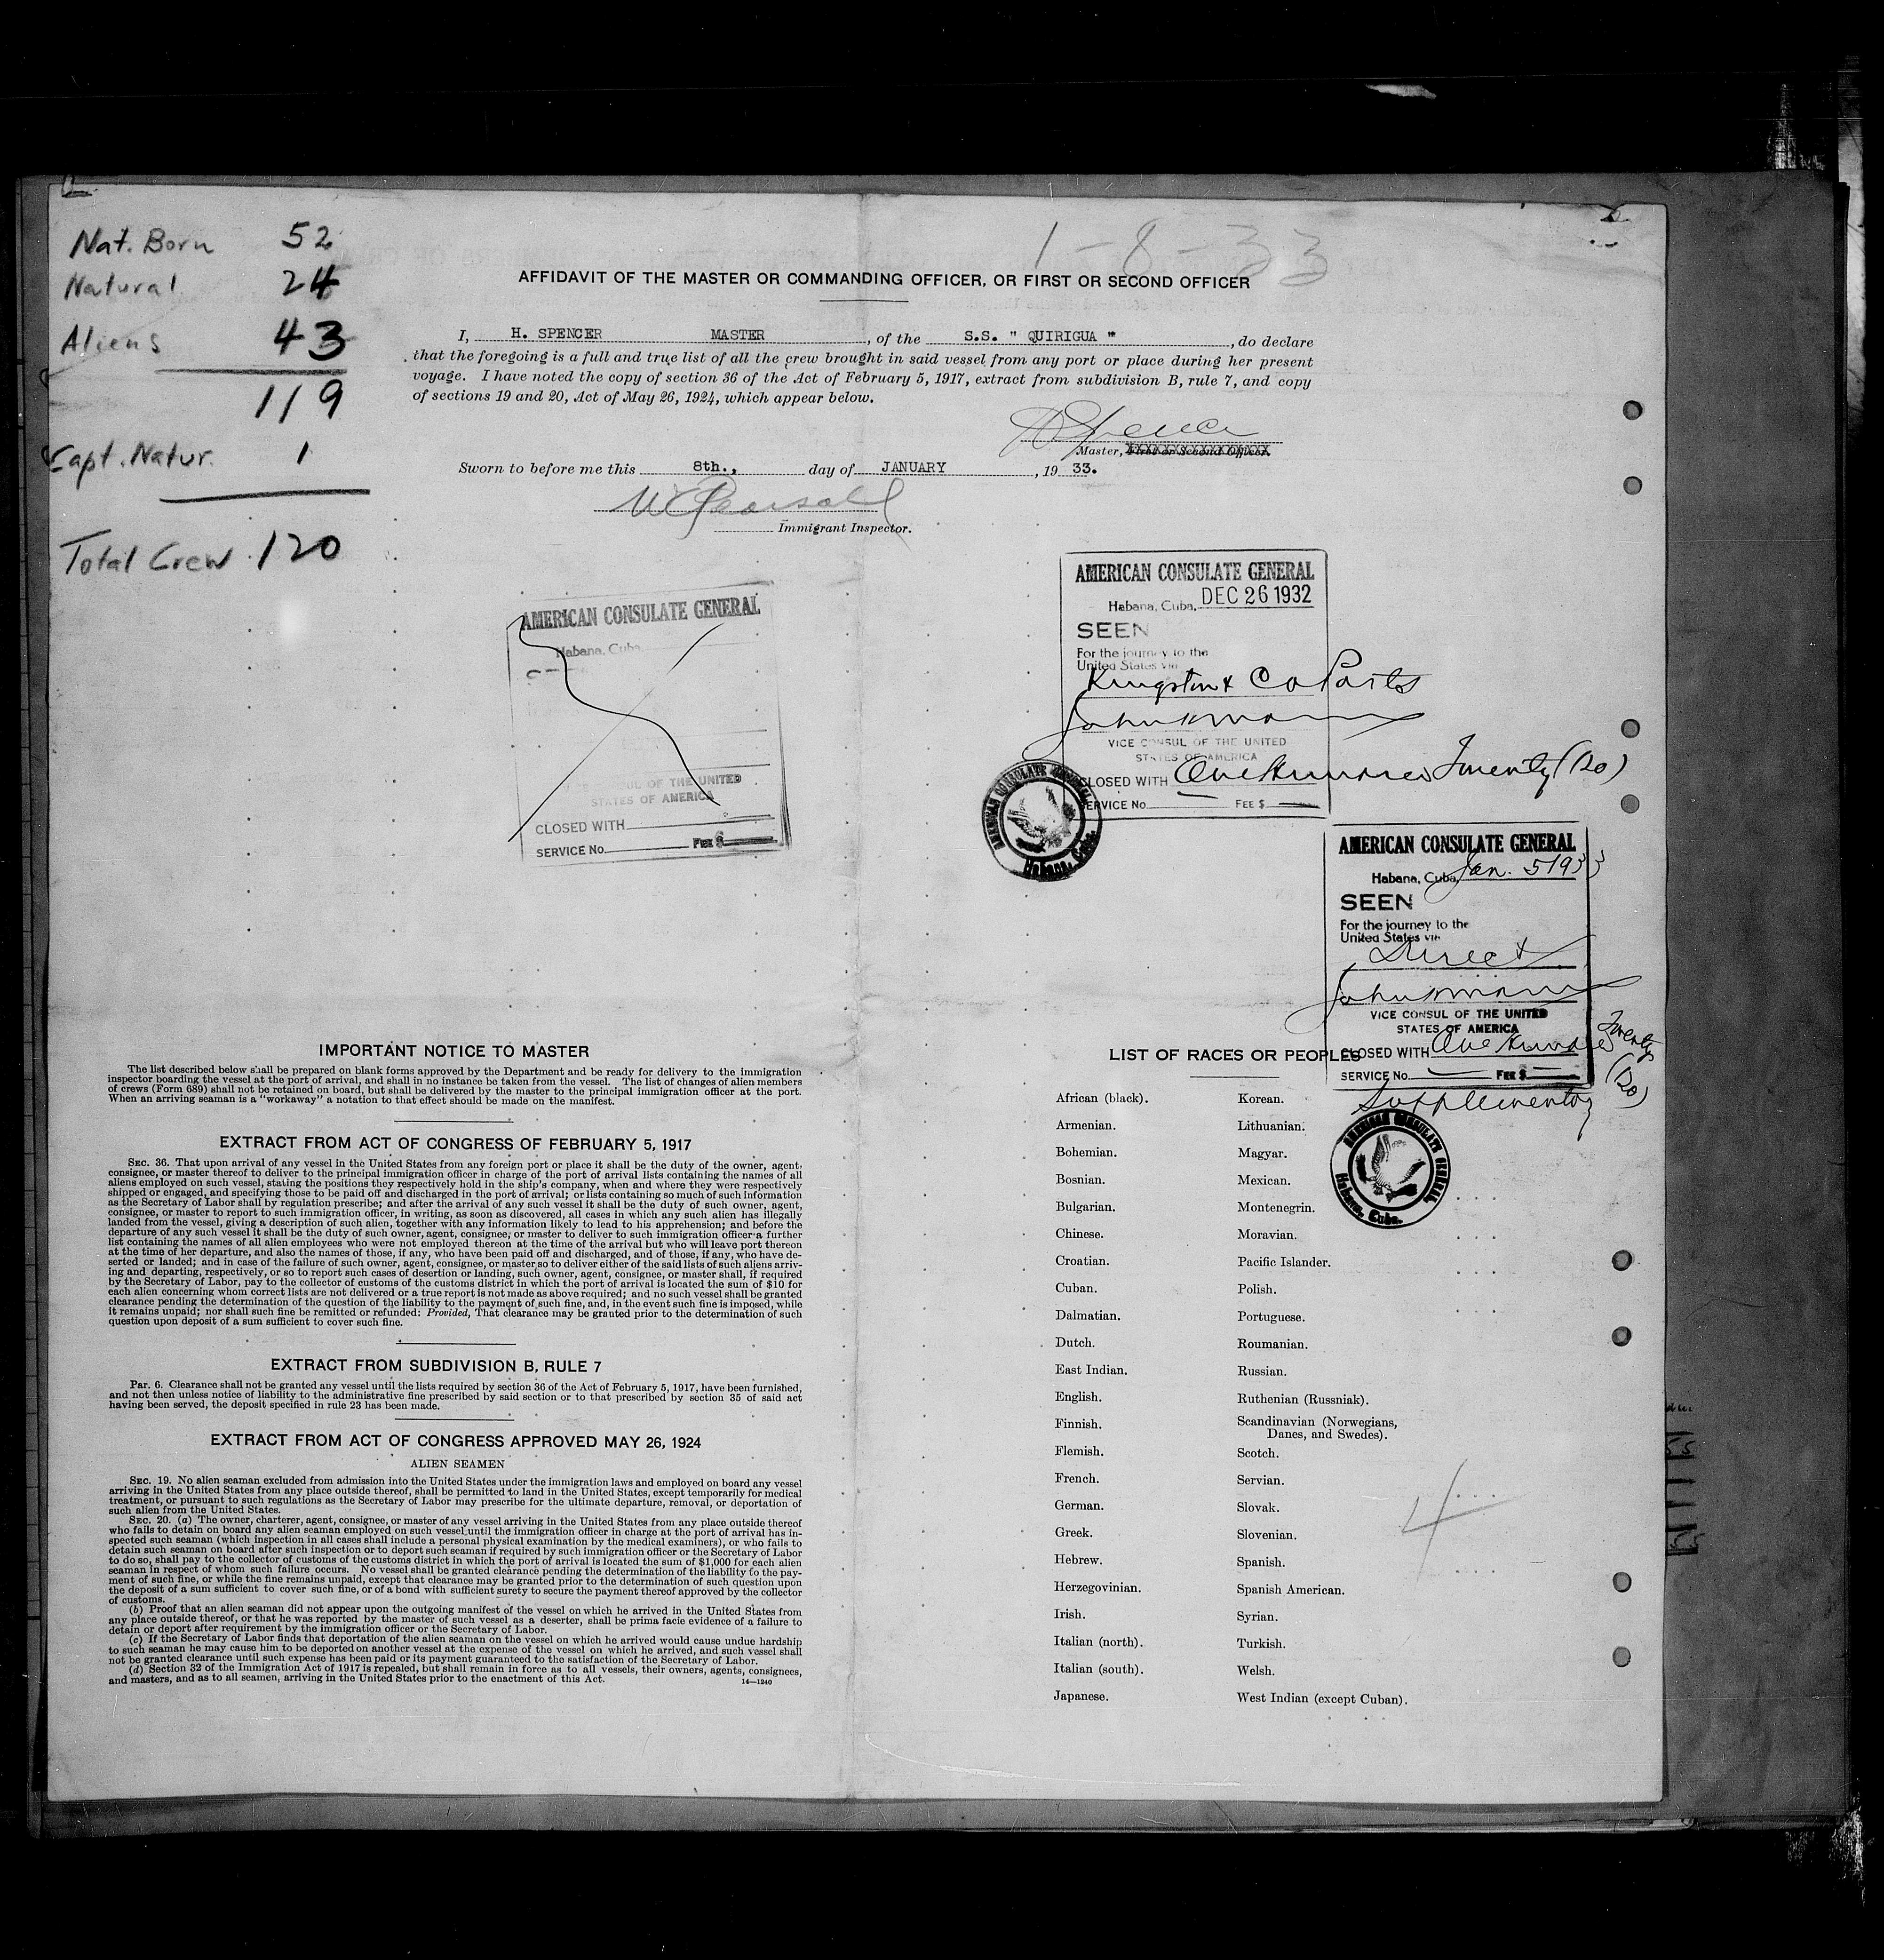 Nat. Born 52
Natural 24
Aliens 43
119
Capt. Natur. 1
Total Crew 120
1-8-33
AFFIDAVIT OF THE MASTER OR COMMANDING OFFICER, OR FIRST OR SECOND OFFICER
I, H. SPENCER MASTER, of the S.S. " QUIRIGUA ", do declare
that the foregoing is a full and true list of all the crew brought in said vessel from any port or place during her present
voyage. I have noted the copy of section 36 of the Act of February 5, 1917, extract from subdivision B, rule 7, and copy
of sections 19 and 20, Act of May 26, 1924, which appear below.
H Spencer
Master, First or Second Officer.
Sworn to before me this 8th., day of JANUARY, 19 33.
Immigrant Inspector.
AMERICAN CONSULATE GENERAL
Habana, Cuba,
OF THE UNITED
STATES OF AMERICA
CLOSED WITH
SERVICE No. FEE $
AMERICAN CONSULATE GENERAL
Habana, Cuba, DEC 26 1932
SEEN
For the journey to the
United States via
Kingston &
VICE CONSUL OF THE UNITED
STATES OF AMERICA
CLOSED WITH One Hundred Twenty (120)
SERVICE No. FEE $
AMERICAN CONSULATE GENERAL
Habana, Cuba.
AMERICAN CONSULATE GENERAL
Habana, Cuba, Jan. 5 1933
SEEN
For the journey to the
United States via
Direct
VICE CONSUL OF THE UNITED
STATES OF AMERICA
CLOSED WITH One Hundred Twenty (120)
SERVICE No. FEE $
Supplementary
AMERICAN CONSULATE GENERAL,
Habana, Cuba.
IMPORTANT NOTICE TO MASTER
The list described below shall be prepared on blank forms approved by the Department and be ready for delivery to the immigration
inspector boarding the vessel at the port of arrival, and shall in no instance be taken from the vessel. The list of changes of alien members
of crews (Form 689) shall not be retained on board, but shall be delivered by the master to the principal immigration officer at the port.
When an arriving seaman is a "workaway" a notation to that effect should be made on the manifest.
EXTRACT FROM ACT OF CONGRESS OF FEBRUARY 5, 1917
SEC. 36. That upon arrival of any vessel in the United States from any foreign port or place it shall be the duty of the owner, agent,
consignee, or master thereof to deliver to the principal immigration officer in charge of the port of arrival lists containing the names of all
aliens employed on such vessel, stating the positions they respectively hold in the ship's company, when and where they were respectively
shipped or engaged, and specifying those to be paid off and discharged in the port of arrival; or lists containing so much of such information
as the Secretary of Labor shall by regulation prescribe; and after the arrival of any such vessel it shall be the duty of such owner, agent,
consignee, or master to report to such immigration officer, in writing, as soon as discovered, all cases in which any such alien has illegally
landed from the vessel, giving a description of such alien, together with any information likely to lead to his apprehension; and before the
departure of any such vessel it shall be the duty of such owner, agent, consignee, or master to deliver to such immigration officer a further
list containing the names of all alien employees who were not employed thereon at the time of the arrival but who will leave port thereon
at the time of her departure, and also the names of those, if any, who have been paid off and discharged, and of those, if any, who have de-
serted or landed; and in case of the failure of such owner, agent, consignee, or master so to deliver either of the said lists of such aliens arriv-
ing and departing, respectively, or so to report such cases of desertion or landing, such owner, agent, consignee, or master shall, if required
by the Secretary of Labor, pay to the collector of customs of the customs district in which the port of arrival is located the sum of $10 for
each alien concerning whom correct lists are not delivered or a true report is not made as above required; and no such vessel shall be granted
clearance pending the determination of the question of the liability to the payment of such fine, and, in the event such fine is imposed, while
it remains unpaid; nor shall such fine be remitted or refunded: Provided, That clearance may be granted prior to the determination of such
question upon deposit of a sum sufficient to cover such fine.
EXTRACT FROM SUBDIVISION B, RULE 7
Par. 6. Clearance shall not be granted any vessel until the lists required by section 36 of the Act of February 5, 1917, have been furnished,
and not then unless notice of liability to the administrative fine prescribed by said section or to that prescribed by section 35 of said act
having been served, the deposit specified in rule 23 has been made.
EXTRACT FROM ACT OF CONGRESS APPROVED MAY 26, 1924
ALIEN SEAMEN
SEC. 19. No alien seaman excluded from admission into the United States under the immigration laws and employed on board any vessel
arriving in the United States from any place outside thereof, shall be permitted to land in the United States, except temporarily for medical
treatment, or pursuant to such regulations as the Secretary of Labor may prescribe for the ultimate departure, removal, or deportation of
such alien from the United States.
SEC. 20. (a) The owner, charterer, agent, consignee, or master of any vessel arriving in the United States from any place outside thereof
who fails to detain on board any alien seaman employed on such vessel until the immigration officer in charge at the port of arrival has in-
spected such seaman (which inspection in all cases shall include a personal physical examination by the medical examiners), or who fails to
detain such seaman on board after such inspection or to deport such seaman if required by such immigration officer or the Secretary of Labor
to do so, shall pay to the collector of customs of the customs district in which the port of arrival is located the sum of $1,000 for each alien
seaman in respect of whom such failure occurs. No vessel shall be granted clearance pending the determination of the liability to the pay-
ment of such fine, or while the fine remains unpaid, except that clearance may be granted prior to the determination of such question upon
the deposit of a sum sufficient to cover such fine, or of a bond with sufficient surety to secure the payment thereof approved by the collector
of customs.
(b) Proof that an alien seaman did not appear upon the outgoing manifest of the vessel on which he arrived in the United States from
any place outside thereof, or that he was reported by the master of such vessel as a deserter, shall be prima facie evidence of a failure to
detain or deport after requirement by the immigration officer or the Secretary of Labor.
(c) If the Secretary of Labor finds that deportation of the alien seaman on the vessel on which he arrived would cause undue hardship
to such seaman he may cause him to be deported on another vessel at the expense of the vessel on which he arrived, and such vessel shall
not be granted clearance until such expense has been paid or its payment guaranteed to the satisfaction of the Secretary of Labor.
(d) Section 32 of the Immigration Act of 1917 is repealed, but shall remain in force as to all vessels, their owners, agents, consignees,
and masters, and as to all seamen, arriving in the United States prior to the enactment of this Act.
14—1240
LIST OF RACES OR PEOPLES
African (black). Korean.
Armenian. Lithuanian.
Bohemian. Magyar.
Bosnian. Mexican.
Bulgarian. Montenegrin.
Chinese. Moravian.
Croatian. Pacific Islander.
Cuban. Polish.
Dalmatian. Portuguese.
Dutch. Roumanian.
East Indian. Russian.
English. Ruthenian (Russniak).
Finnish. Scandinavian (Norwegians,
Danes, and Swedes).
Flemish. Scotch.
French. Servian.
German. Slovak.
Greek. Slovenian.
Hebrew. Spanish.
Herzegovinian. Spanish American.
Irish. Syrian.
Italian (north). Turkish.
Italian (south). Welsh.
Japanese. West Indian (except Cuban).
4